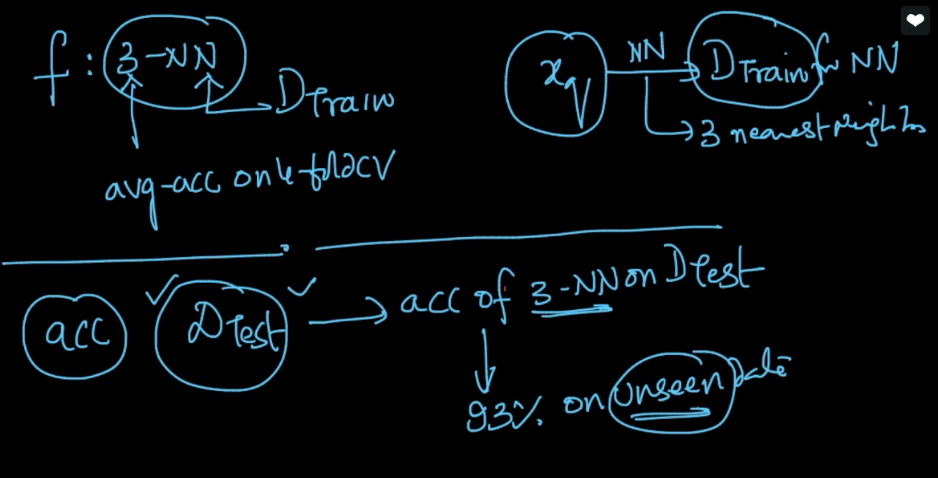 f : 3-NN
DTrain
avg-acc on 4-fold CV
xq NN DTrain for NN
3 nearest neighbors
acc DTest
acc of 3-NN on Dtest
93% on unseen Data